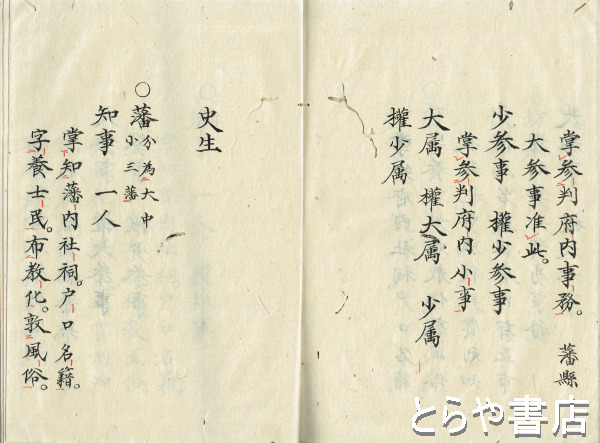 掌参判府内事務。　藩縣
大参事准此。
少参事　權少参事
掌参判府内小事
大属　權大属　少属
權少属
史生
○藩分為大中小三藩
知事　一人
掌知藩内社祠戸口名籍
字養士民。布教化。敦風俗。
とらや書店